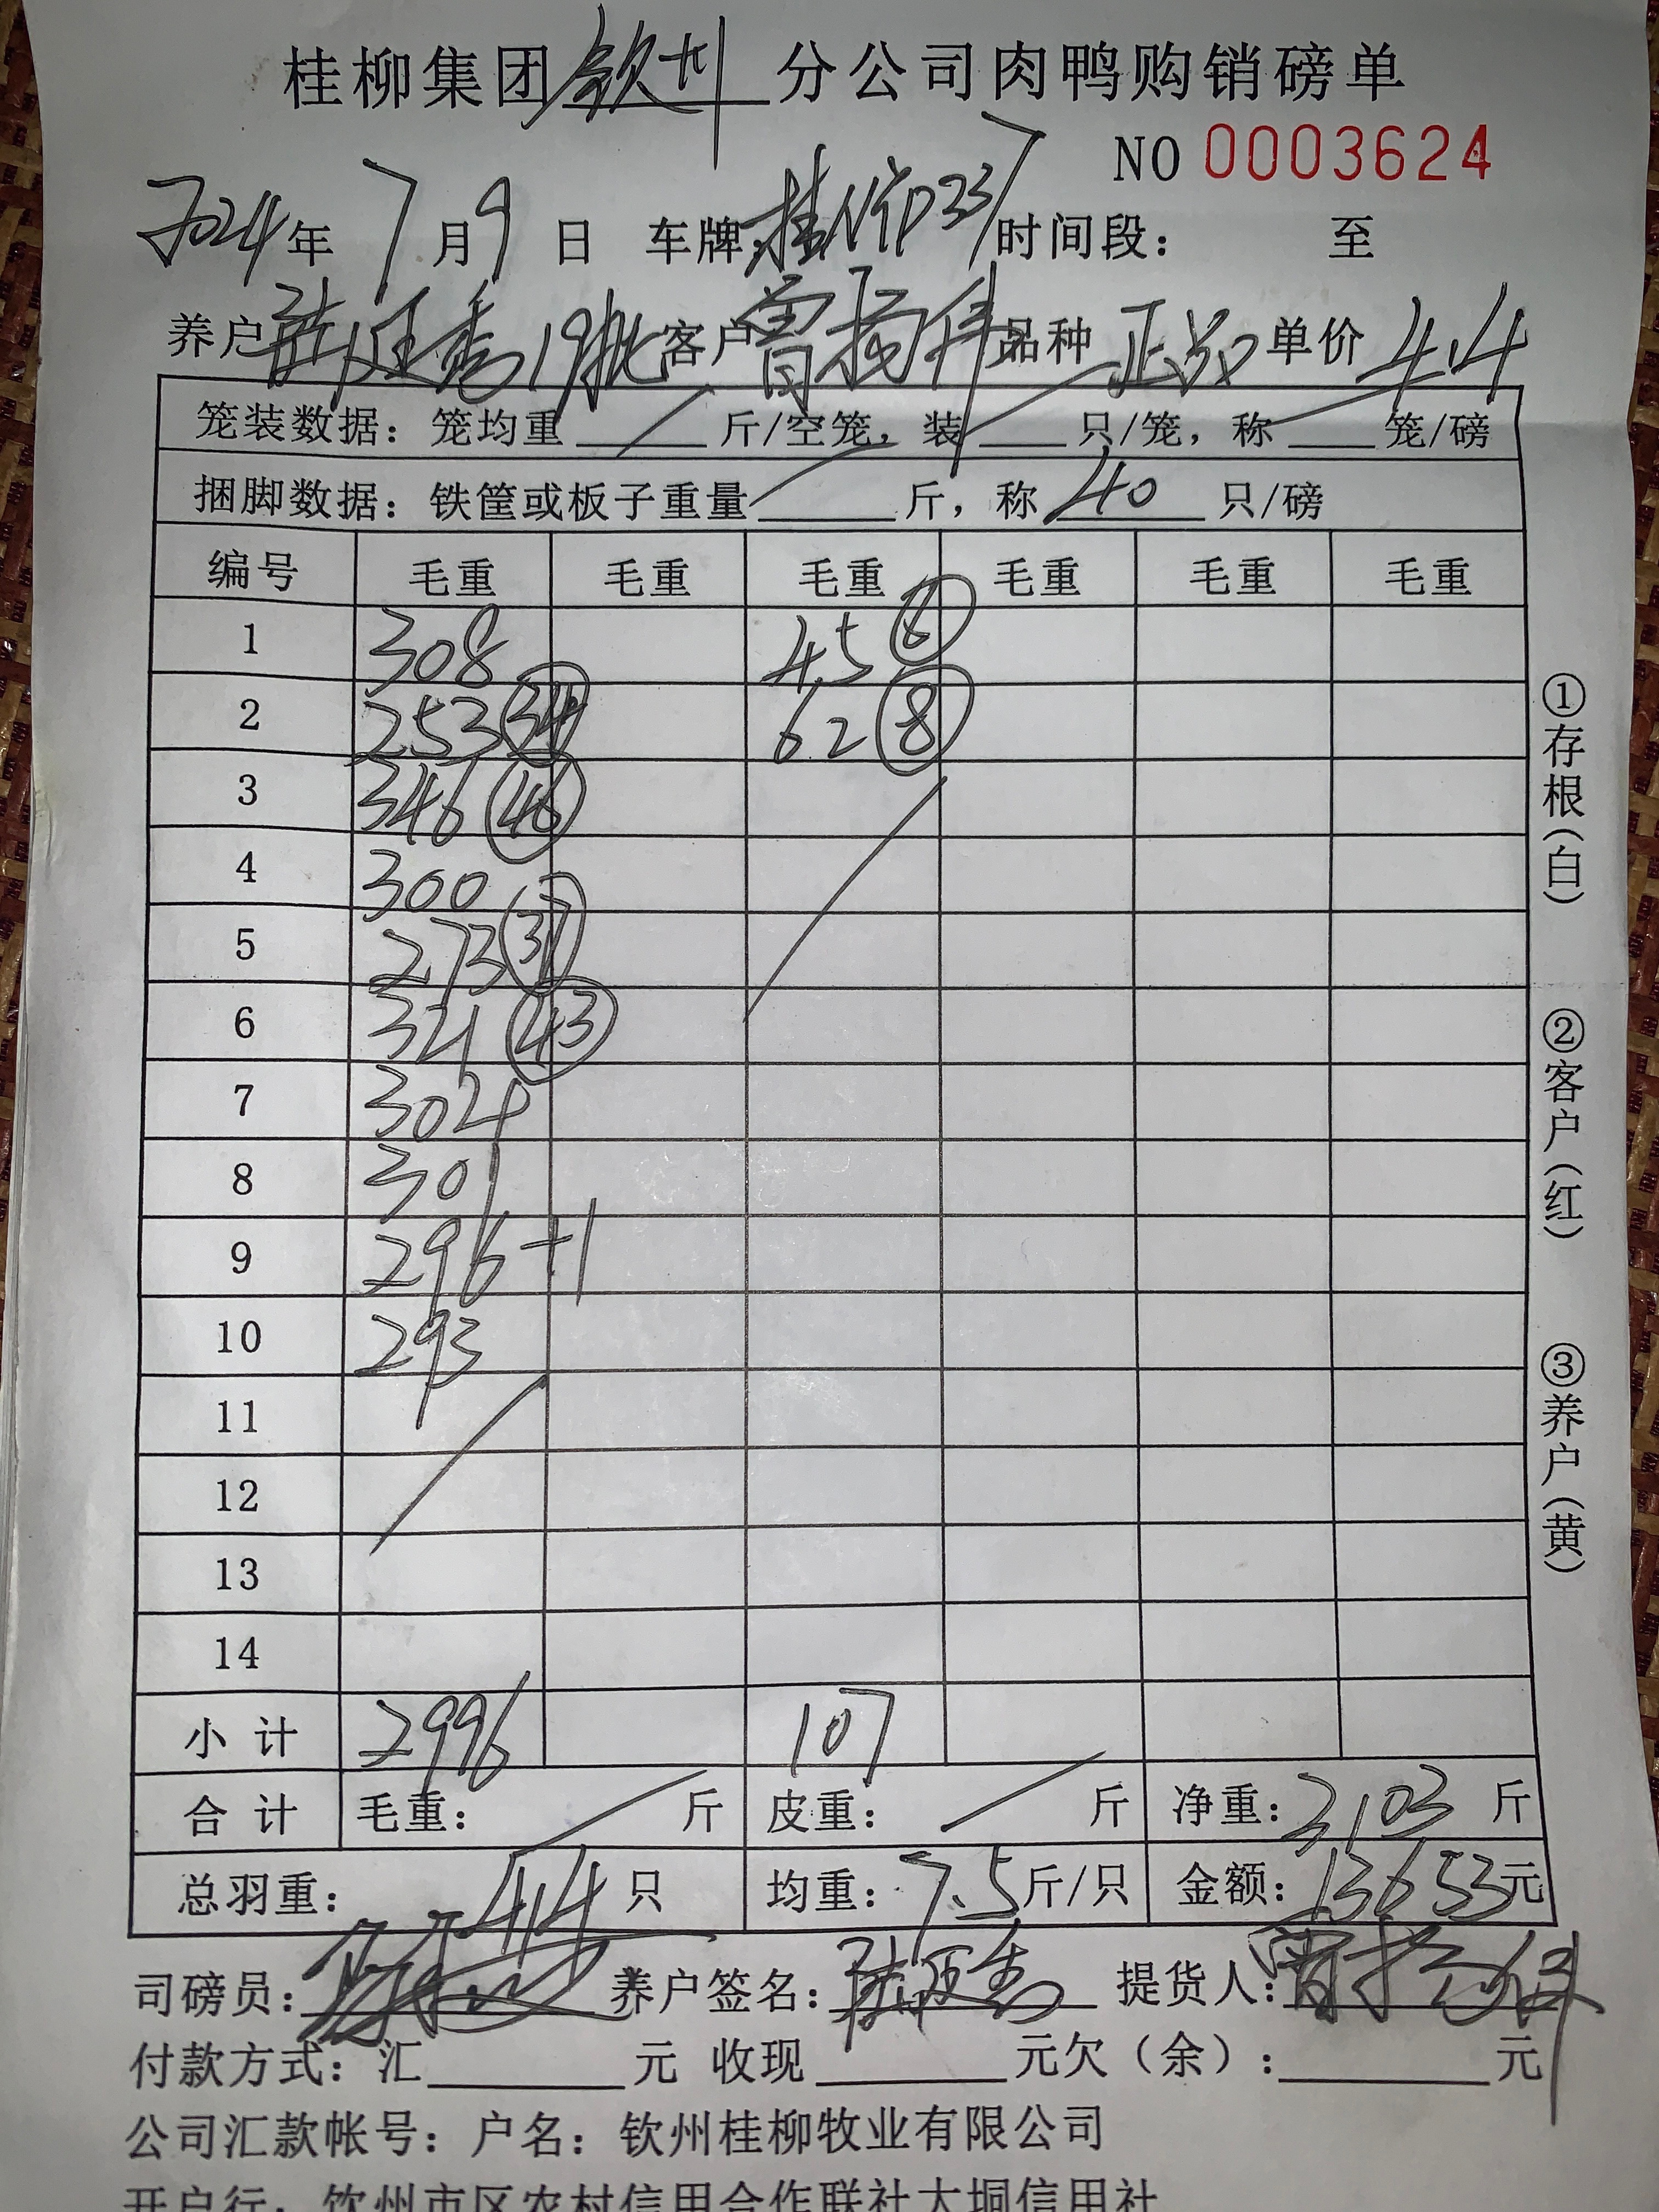 桂柳集团钦州分公司肉鸭购销磅单
NO 0003624
2024年7月9日 车牌:桂N 时间段: 至
养户 旺秀19批 客户 曾 伟 品种 正品 单价 4.4
笼装数据:笼均重 / 斤/空笼,装 / 只/笼,称 / 笼/磅
捆脚数据:铁筐或板子重量 / 斤,称 40 只/磅
编号 毛重 毛重 毛重 毛重 毛重 毛重
1 308 45 ⑥
2 253 ㉞ 62 ⑧
3 346 ㊻
4 300
5 273 ㊲
6 321 ㊸
7 304
8 301
9 296 +1
10 293
11
12
13
14
小计 2996 107
合计 毛重: / 斤 皮重: / 斤 净重:3103 斤
总羽重: 414 只 均重:7.5斤/只 金额:13653元
司磅员: 养户签名: 旺秀 提货人:曾
付款方式:汇 元 收现 元欠(余): 元
公司汇款帐号:户名:钦州桂柳牧业有限公司
开户行:钦州市区农村信用合作联社大垌信用社
①存根(白)
②客户(红)
③养户(黄)